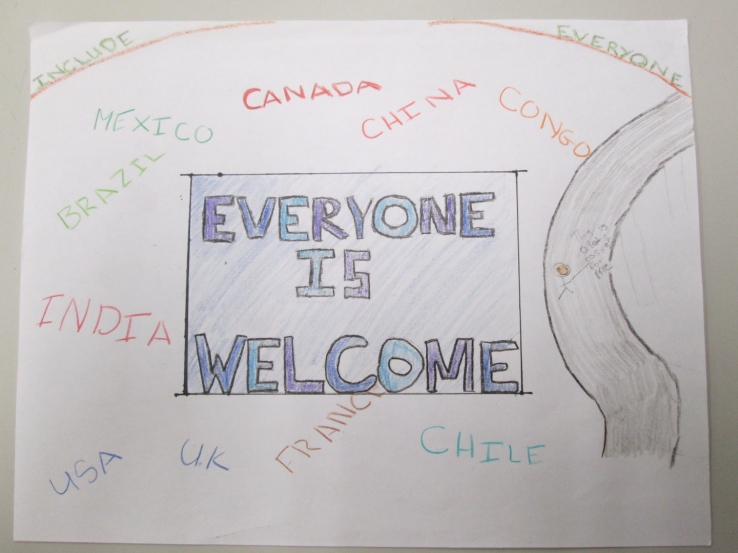 INCLUDE
EVERYONE
CANADA
CHINA
CONGO
MEXICO
BRAZIL
EVERYONE
IS
WELCOME
INDIA
FRANCE
CHILE
UK
USA